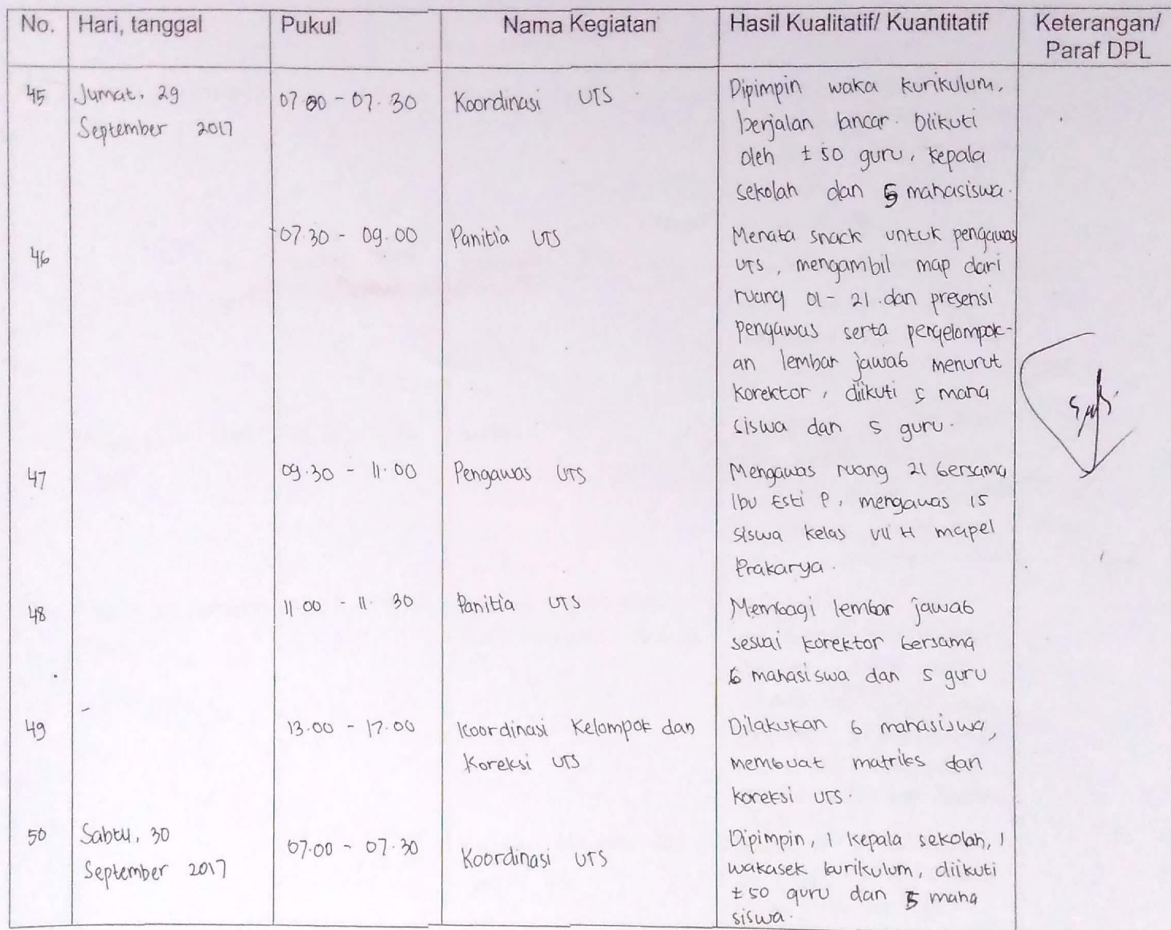 No. Hari, tanggal Pukul Nama Kegiatan Hasil Kualitatif/ Kuantitatif Keterangan/
Paraf DPL
45 Jumat, 29 07.00 - 07.30 Koordinasi UTS Dipimpin waka kurikulum,
September 2017 berjalan lancar. Diikuti
oleh ± 50 guru, kepala
sekolah dan 5 mahasiswa.
46 07.30 - 09.00 Panitia UTS Menata snack untuk pengawas
UTS, mengambil map dari
ruang 01 - 21 dan presensi
pengawas serta pengelompok-
an lembar jawab menurut
korektor, diikuti 5 maha
siswa dan 5 guru.
47 09.30 - 11.00 Pengawas UTS Mengawas ruang 21 bersama
Ibu Esti P, mengawas 15
siswa kelas VII H mapel
Prakarya.
48 11.00 - 11.30 Panitia UTS Membagi lembar jawab
sesuai korektor bersama
6 mahasiswa dan 5 guru
49 13.00 - 17.00 Koordinasi Kelompok dan Dilakukan 6 mahasiswa,
Koreksi UTS membuat matriks dan
koreksi UTS.
50 Sabtu, 30 07.00 - 07.30 Koordinasi UTS Dipimpin, 1 kepala sekolah, 1
September 2017 wakasek kurikulum, diikuti
± 50 guru dan 5 maha
siswa.